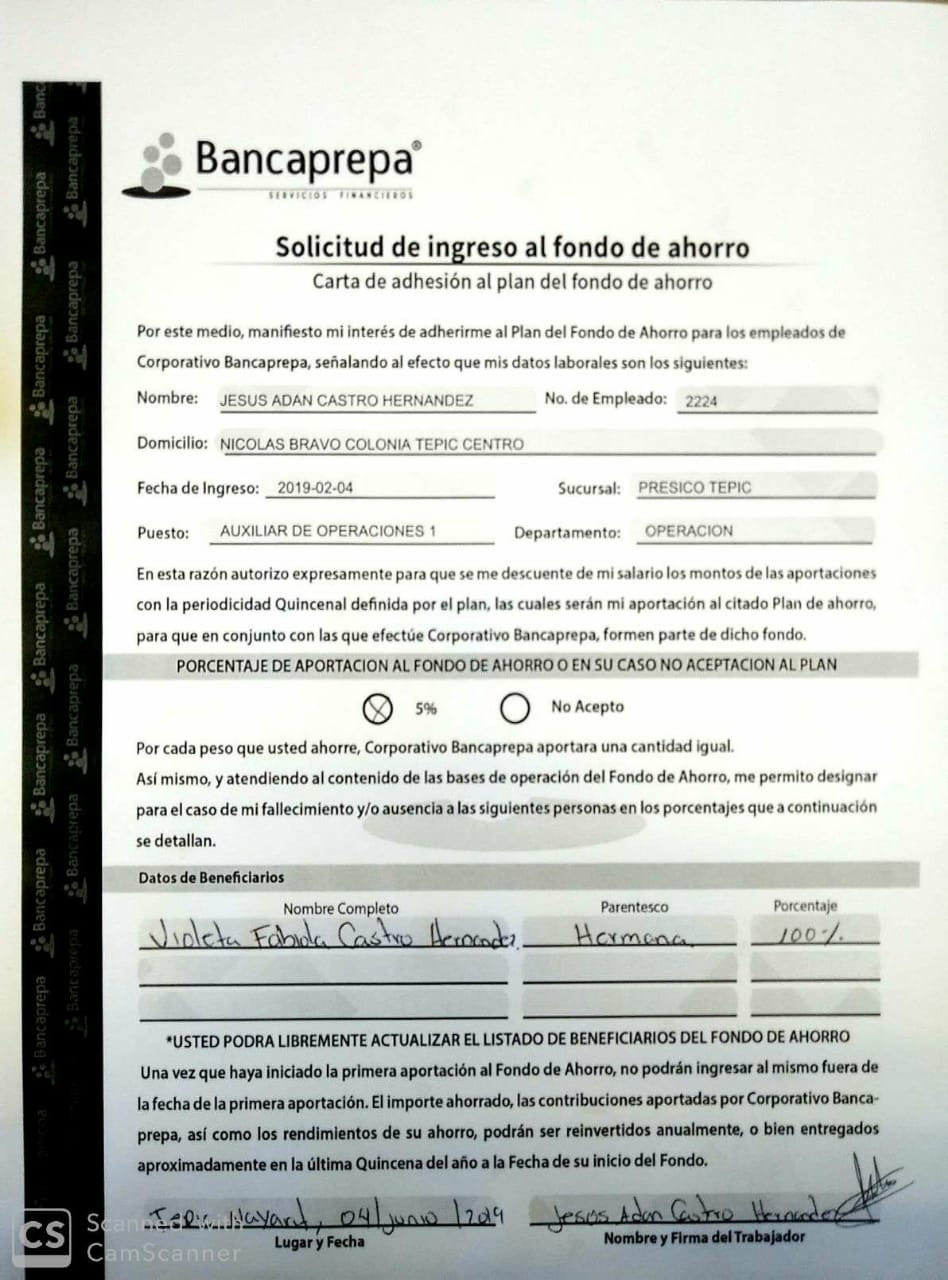 Bancaprepa®
SERVICIOS FINANCIEROS
Solicitud de ingreso al fondo de ahorro
Carta de adhesión al plan del fondo de ahorro
Por este medio, manifiesto mi interés de adherirme al Plan del Fondo de Ahorro para los empleados de
Corporativo Bancaprepa, señalando al efecto que mis datos laborales son los siguientes:
Nombre: JESUS ADAN CASTRO HERNANDEZ No. de Empleado: 2224
Domicilio: NICOLAS BRAVO COLONIA TEPIC CENTRO
Fecha de Ingreso: 2019-02-04 Sucursal: PRESICO TEPIC
Puesto: AUXILIAR DE OPERACIONES 1 Departamento: OPERACION
En esta razón autorizo expresamente para que se me descuente de mi salario los montos de las aportaciones
con la periodicidad Quincenal definida por el plan, las cuales serán mi aportación al citado Plan de ahorro,
para que en conjunto con las que efectúe Corporativo Bancaprepa, formen parte de dicho fondo.
PORCENTAJE DE APORTACION AL FONDO DE AHORRO O EN SU CASO NO ACEPTACION AL PLAN
5% No Acepto
Por cada peso que usted ahorre, Corporativo Bancaprepa aportara una cantidad igual.
Así mismo, y atendiendo al contenido de las bases de operación del Fondo de Ahorro, me permito designar
para el caso de mi fallecimiento y/o ausencia a las siguientes personas en los porcentajes que a continuación
se detallan.
Datos de Beneficiarios
Nombre Completo Parentesco Porcentaje
Violeta Fabiola Castro Hernandez. Hermana. 100%.
*USTED PODRA LIBREMENTE ACTUALIZAR EL LISTADO DE BENEFICIARIOS DEL FONDO DE AHORRO
Una vez que haya iniciado la primera aportación al Fondo de Ahorro, no podrán ingresar al mismo fuera de
la fecha de la primera aportación. El importe ahorrado, las contribuciones aportadas por Corporativo Banca-
prepa, así como los rendimientos de su ahorro, podrán ser reinvertidos anualmente, o bien entregados
aproximadamente en la última Quincena del año a la Fecha de su inicio del Fondo.
Tepic Nayarit, 04/Junio/2019 Jesus Adan Castro Hernandez
Lugar y Fecha Nombre y Firma del Trabajador
CS Scanned with
CamScanner